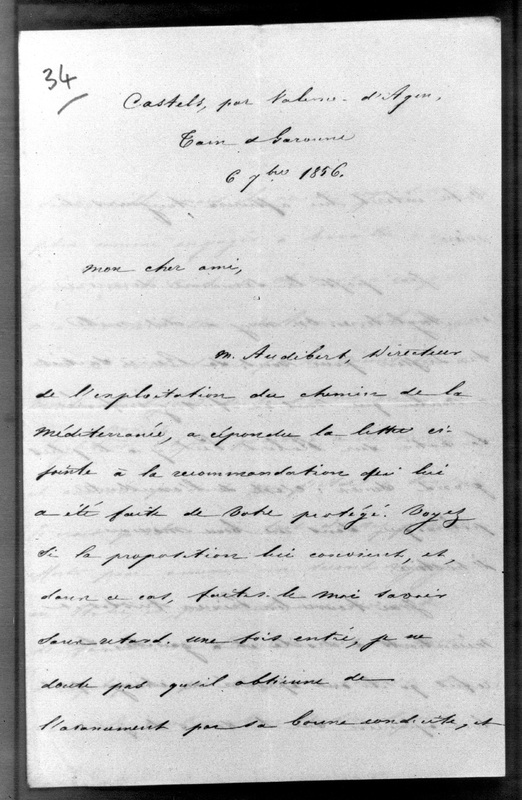 34
Castels, par Valence-d'Agen,
Tarn & Garonne
6 7bre 1856.
mon cher ami,
M. Audibert, Directeur
de l'exploitation du chemin de la
Méditerranée, a répondu la lettre ci-
jointe à la recommandation qui lui
a été faite de votre protégé. Voyez
si la proposition lui convient, et,
dans ce cas, faites-le moi savoir
sans retard. une fois entré, je ne
doute pas qu'il obtienne de
l'avancement par sa bonne conduite, et